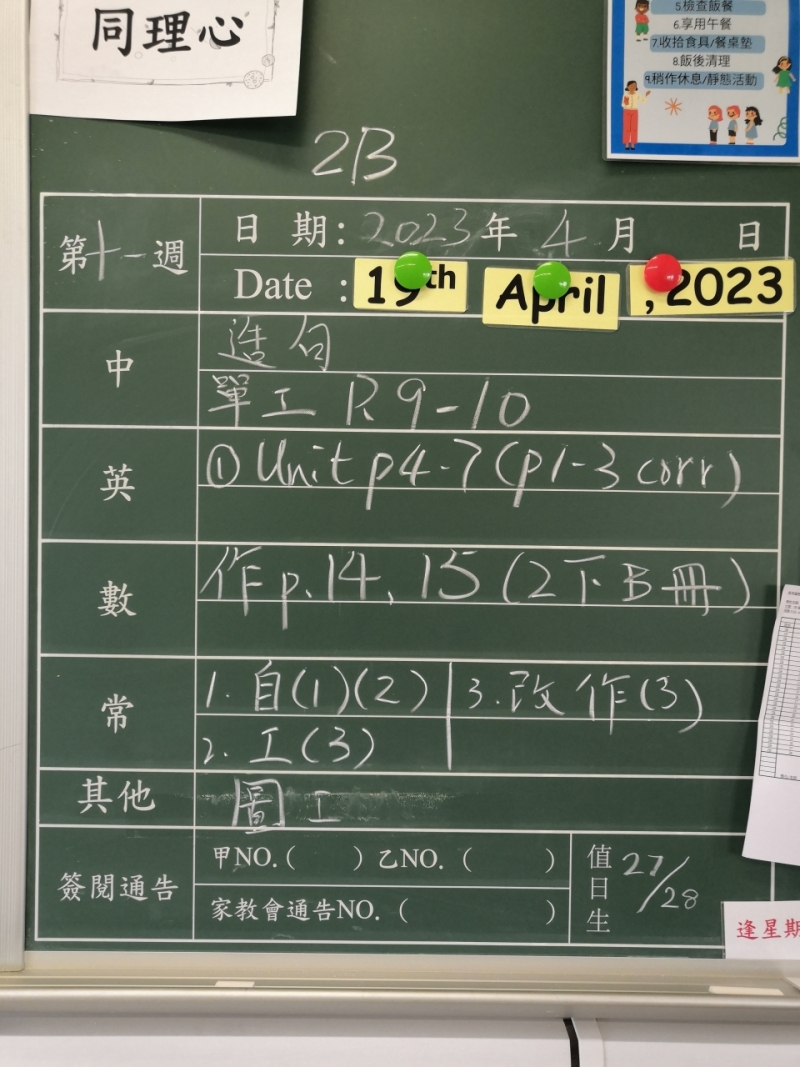 同理心
5.檢查飯餐
6.享用午餐
7.收拾食具/餐桌墊
8.飯後清理
9.稍作休息/靜態活動
2B
第十一週
日 期: 2023 年 4 月 日
Date : 19th April , 2023
中
造句
單工 P.9-10
英
① Unit p4-7 (p1-3 corr)
數
作p.14、15 (2下B冊)
常
1. 自(1)(2)
3. 改作(3)
2. 工(3)
其他
圖工
簽閱通告
甲NO.( ) 乙NO. ( )
家教會通告NO. ( )
值日生
27/28
逢星期